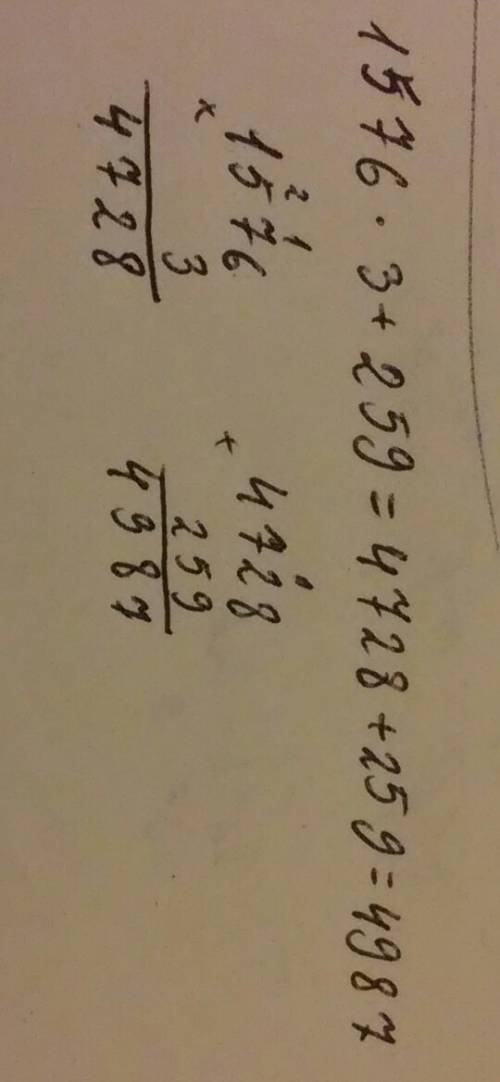 1576 · 3 + 259 = 4728 + 259 = 4987
2 1
1576
×
3
4728
+
4728
259
4987